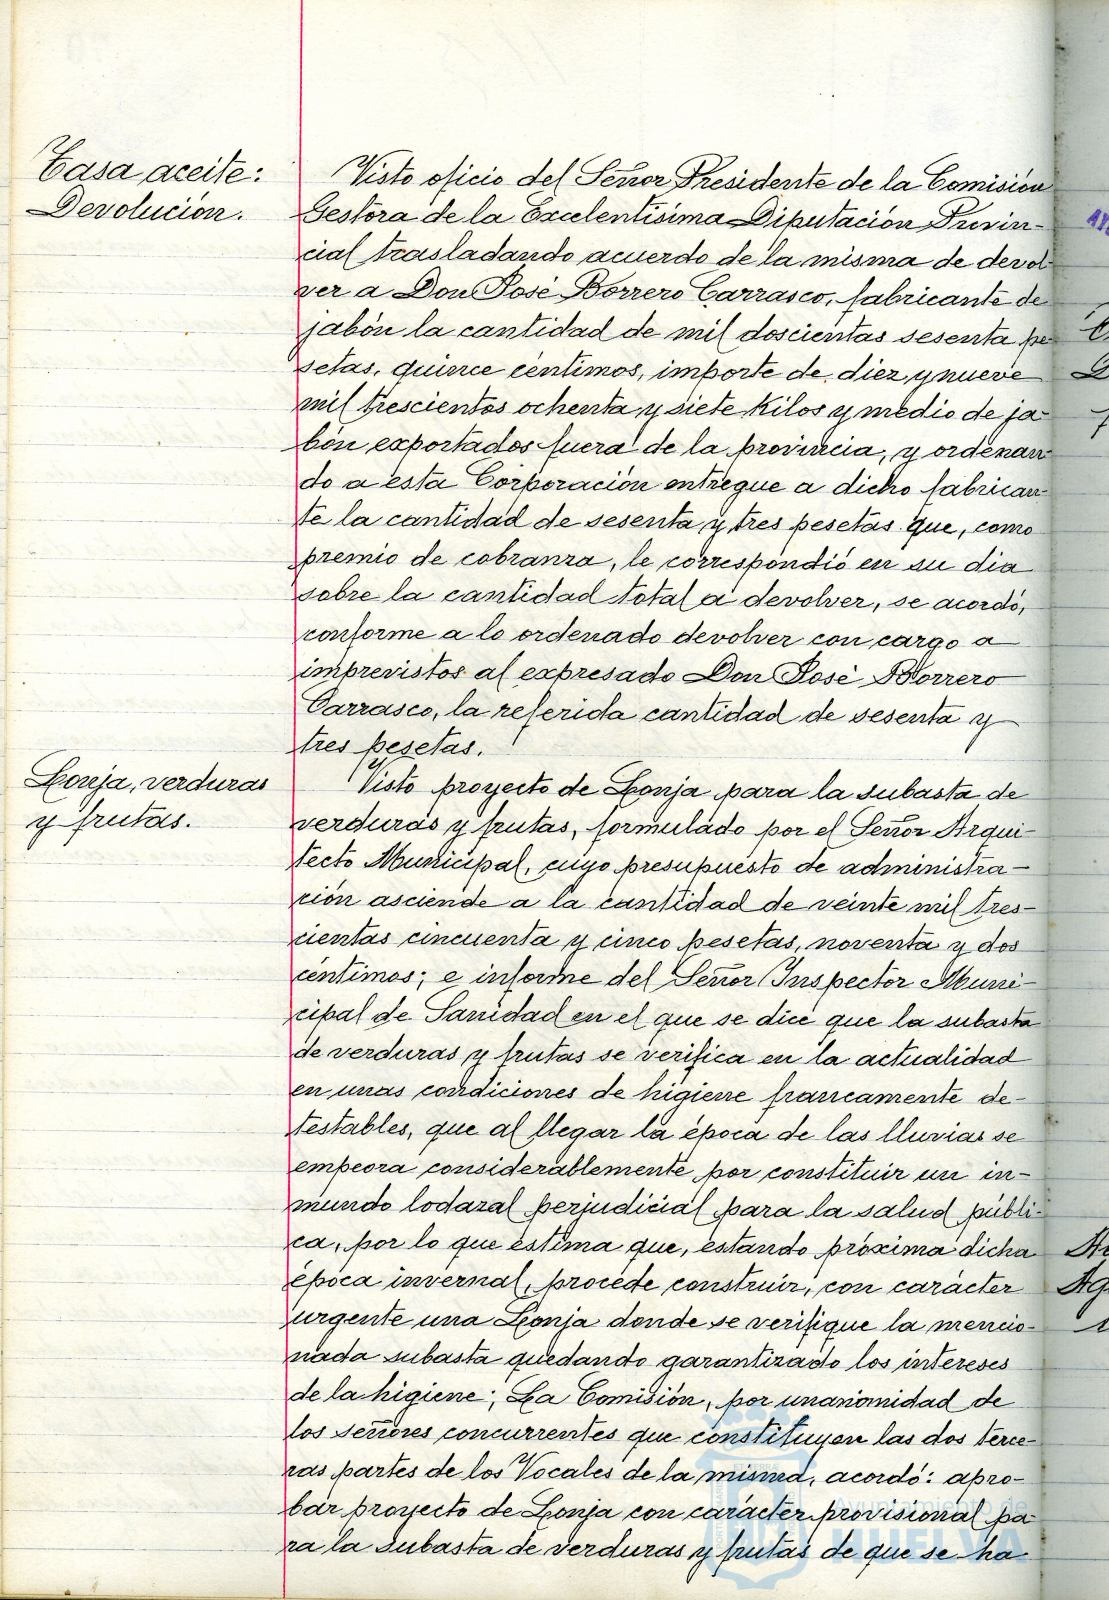 Tasa aceite:
Devolución.
Visto oficio del Señor Presidente de la Comisión
Gestora de la Excelentísima Diputación Provin-
cial trasladando acuerdo de la misma de devol-
ver a Don José Borrero Carrasco, fabricante de
jabón la cantidad de mil doscientas sesenta pe-
setas, quince céntimos, importe de diez y nueve
mil trescientos ochenta y siete kilos y medio de ja-
bón exportados fuera de la provincia, y ordenan-
do a esta Corporación entregue a dicho fabrican-
te la cantidad de sesenta y tres pesetas que, como
premio de cobranza, le correspondió en su dia
sobre la cantidad total a devolver, se acordó,
conforme a lo ordenado devolver con cargo a
imprevistos al expresado Don José Borrero
Carrasco, la referida cantidad de sesenta y
tres pesetas.
Lonja, verduras
y frutas.
Visto proyecto de Lonja para la subasta de
verduras y frutas, formulado por el Señor Arqui-
tecto Municipal, cuyo presupuesto de administra-
ción asciende a la cantidad de veinte mil tres-
cientas cincuenta y cinco pesetas, noventa y dos
céntimos; e informe del Señor Inspector Muni-
cipal de Sanidad en el que se dice que la subasta
de verduras y frutas se verifica en la actualidad
en unas condiciones de higiene francamente de-
testables, que al llegar la época de las lluvias se
empeora considerablemente por constituir un in-
mundo lodazal perjudicial para la salud públi-
ca, por lo que estima que, estando próxima dicha
época invernal, procede construir, con carácter
urgente una Lonja donde se verifique la mencio-
nada subasta quedando garantizado los intereses
de la higiene; La Comisión, por unanimidad de
los señores concurrentes que constituyen las dos terce-
ras partes de los Vocales de la misma, acordó: apro-
bar proyecto de Lonja con carácter provisional pa-
ra la subasta de verduras y frutas de que se ha-
Ayuntamiento de
HUELVA